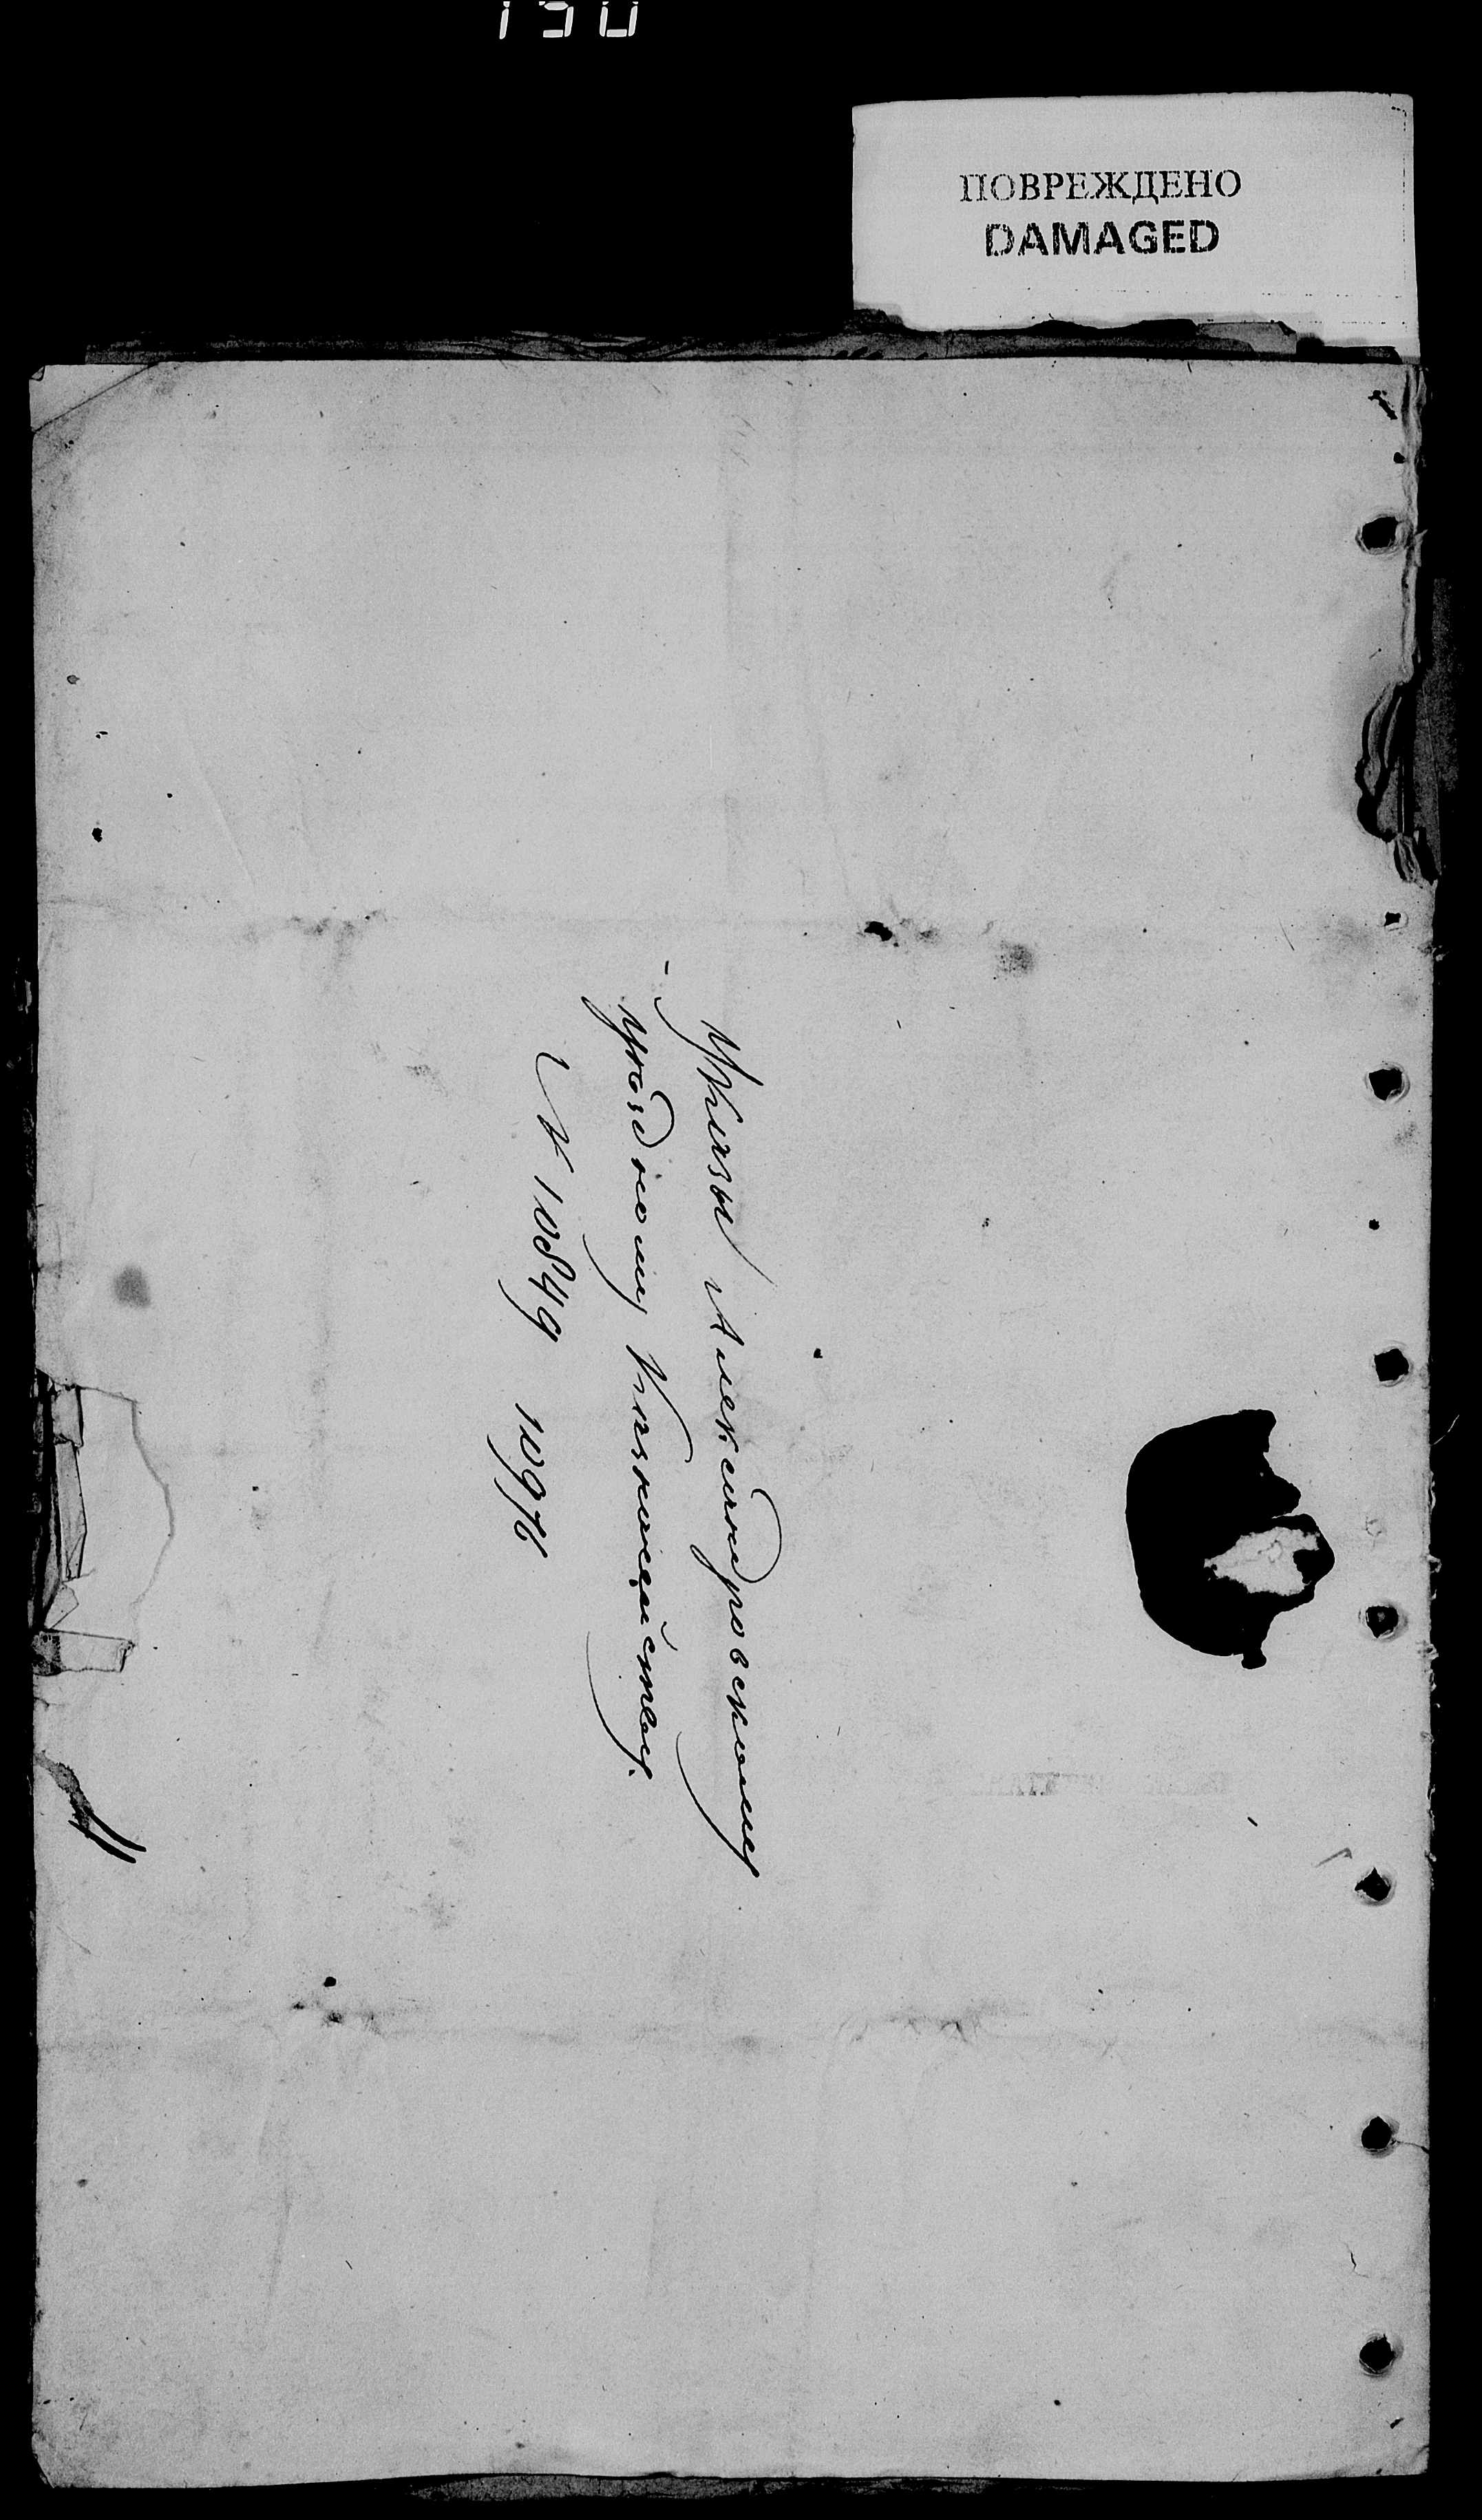 190
ПОВРЕЖДЕНО
DAMAGED
Указы Александровскому
уѣздному Казначейству.
№ 10849 10976